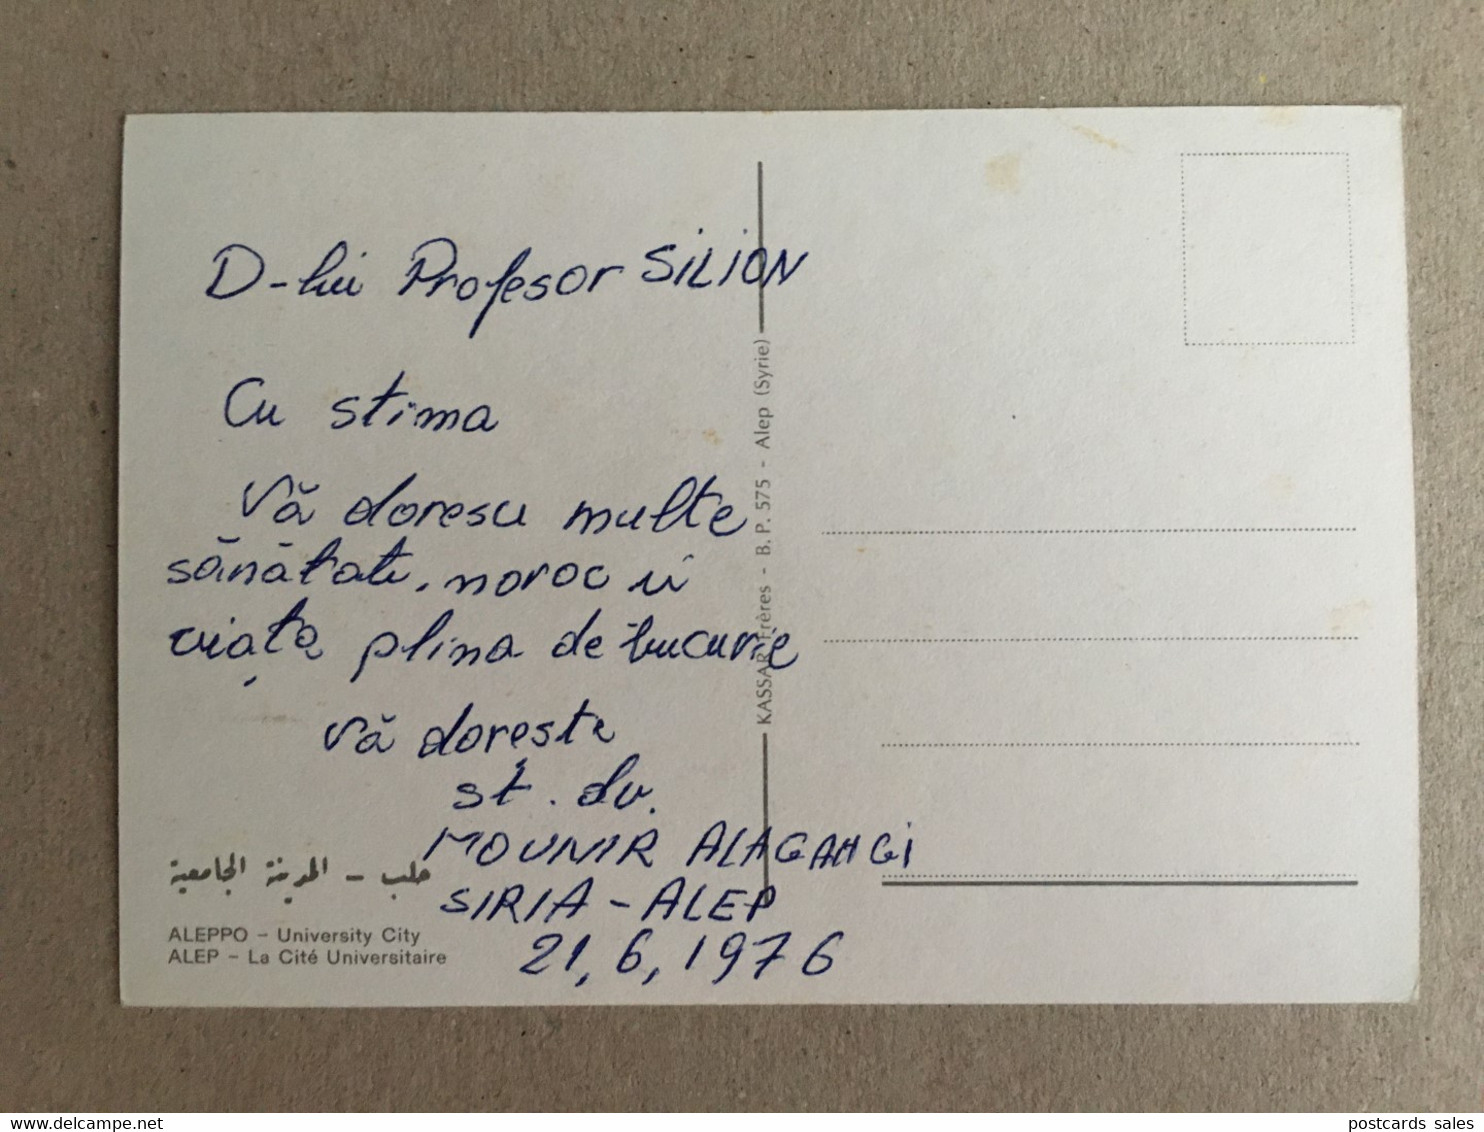 D-lui Profesor SILION
Cu stima
Vă doresc multe
sănătate, noroc și
viață plina de bucurie
Vă dorește
st. dv.
MOUNIR ALAGAHGI
SIRIA - ALEP
21, 6, 1976
حلب - المدينة الجامعية
ALEPPO - University City
ALEP - La Cité Universitaire
KASSAR Frères - B. P. 575 - Alep (Syrie)
postcards sales